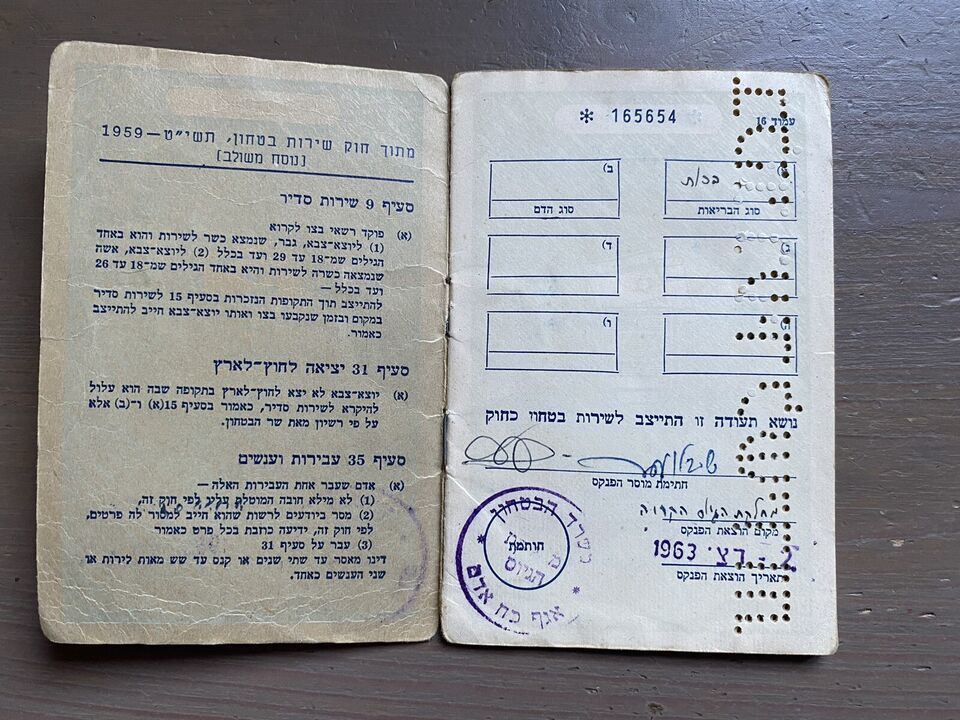 מתוך חוק שירות בטחון, תשי"ט—1959
(נוסח משולב)
סעיף 9 שירות סדיר
(א) פוקד רשאי בצו לקרוא
(1) ליוצא־צבא, גבר, שנמצא כשר לשירות והוא באחד
הגילים שמ־18 עד 29 ועד בכלל (2) ליוצאת־צבא, אשה
שנמצאה כשרה לשירות והיא באחד הגילים שמ־18 עד 26
ועד בכלל —
להתייצב תוך התקופות הנזכרות בסעיף 15 לשירות סדיר
במקום ובזמן שנקבעו בצו ואותו יוצא־צבא חייב להתייצב
כאמור.
סעיף 31 יציאה לחוץ־לארץ
(א) יוצא־צבא לא יצא לחוץ־לארץ בתקופה שבה הוא עלול
להיקרא לשירות סדיר, כאמור בסעיף 15(א) ו־(ב) אלא
על פי רשיון מאת שר הבטחון.
סעיף 35 עבירות וענשים
(א) אדם שעבר אחת העבירות האלה—
(1) לא מילא חובה המוטלת עליו לפי חוק זה,
(2) מסר ביודעים לרשות שהוא חייב למסור לה פרטים,
לפי חוק זה, ידיעה כוזבת בכל פרט כאמור
(3) עבר על סעיף 31
דינו מאסר עד שתי שנים או קנס עד שש מאות לירות או
שני הענשים כאחד.
עמוד 16
✻ 165654
ב)
סוג הבריאות
סוג הדם
ג)
ד)
ה)
ו)
נושא תעודה זו התייצב לשירות בטחון כחוק
חתימת מוסר הפנקס
מחלקת הגיוס הקריה
מקום הוצאת הפנקס
דצ. 1963
תאריך הוצאת הפנקס
משרד הבטחון
חותמת
הגיוס
אגף כח אדם